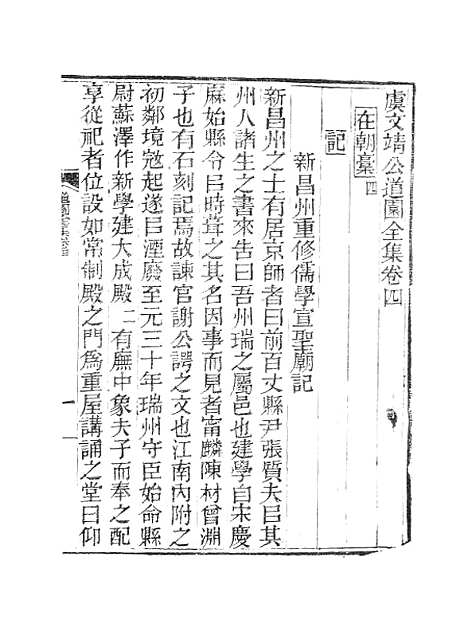 虞文靖公道園全集卷四
在朝藁四
記
新昌州重修儒學宣聖廟記
新昌州之士有居京師者曰前百丈縣尹張質夫㠯其
州人諸生之書來告曰吾州瑞之屬邑也建學自宋慶
麻始縣令呂時葺之其名因事而見者甯麟陳材曾淵
子也有石刻記焉故諫官謝公諤之文也江南內附之
初鄰境寇起遂㠯湮廢至元三十年瑞州守臣始命縣
尉蘇澤作新學建大成殿二有廡中象夫子而奉之配
享從祀者位設如常制殿之門爲重屋講誦之堂曰仰